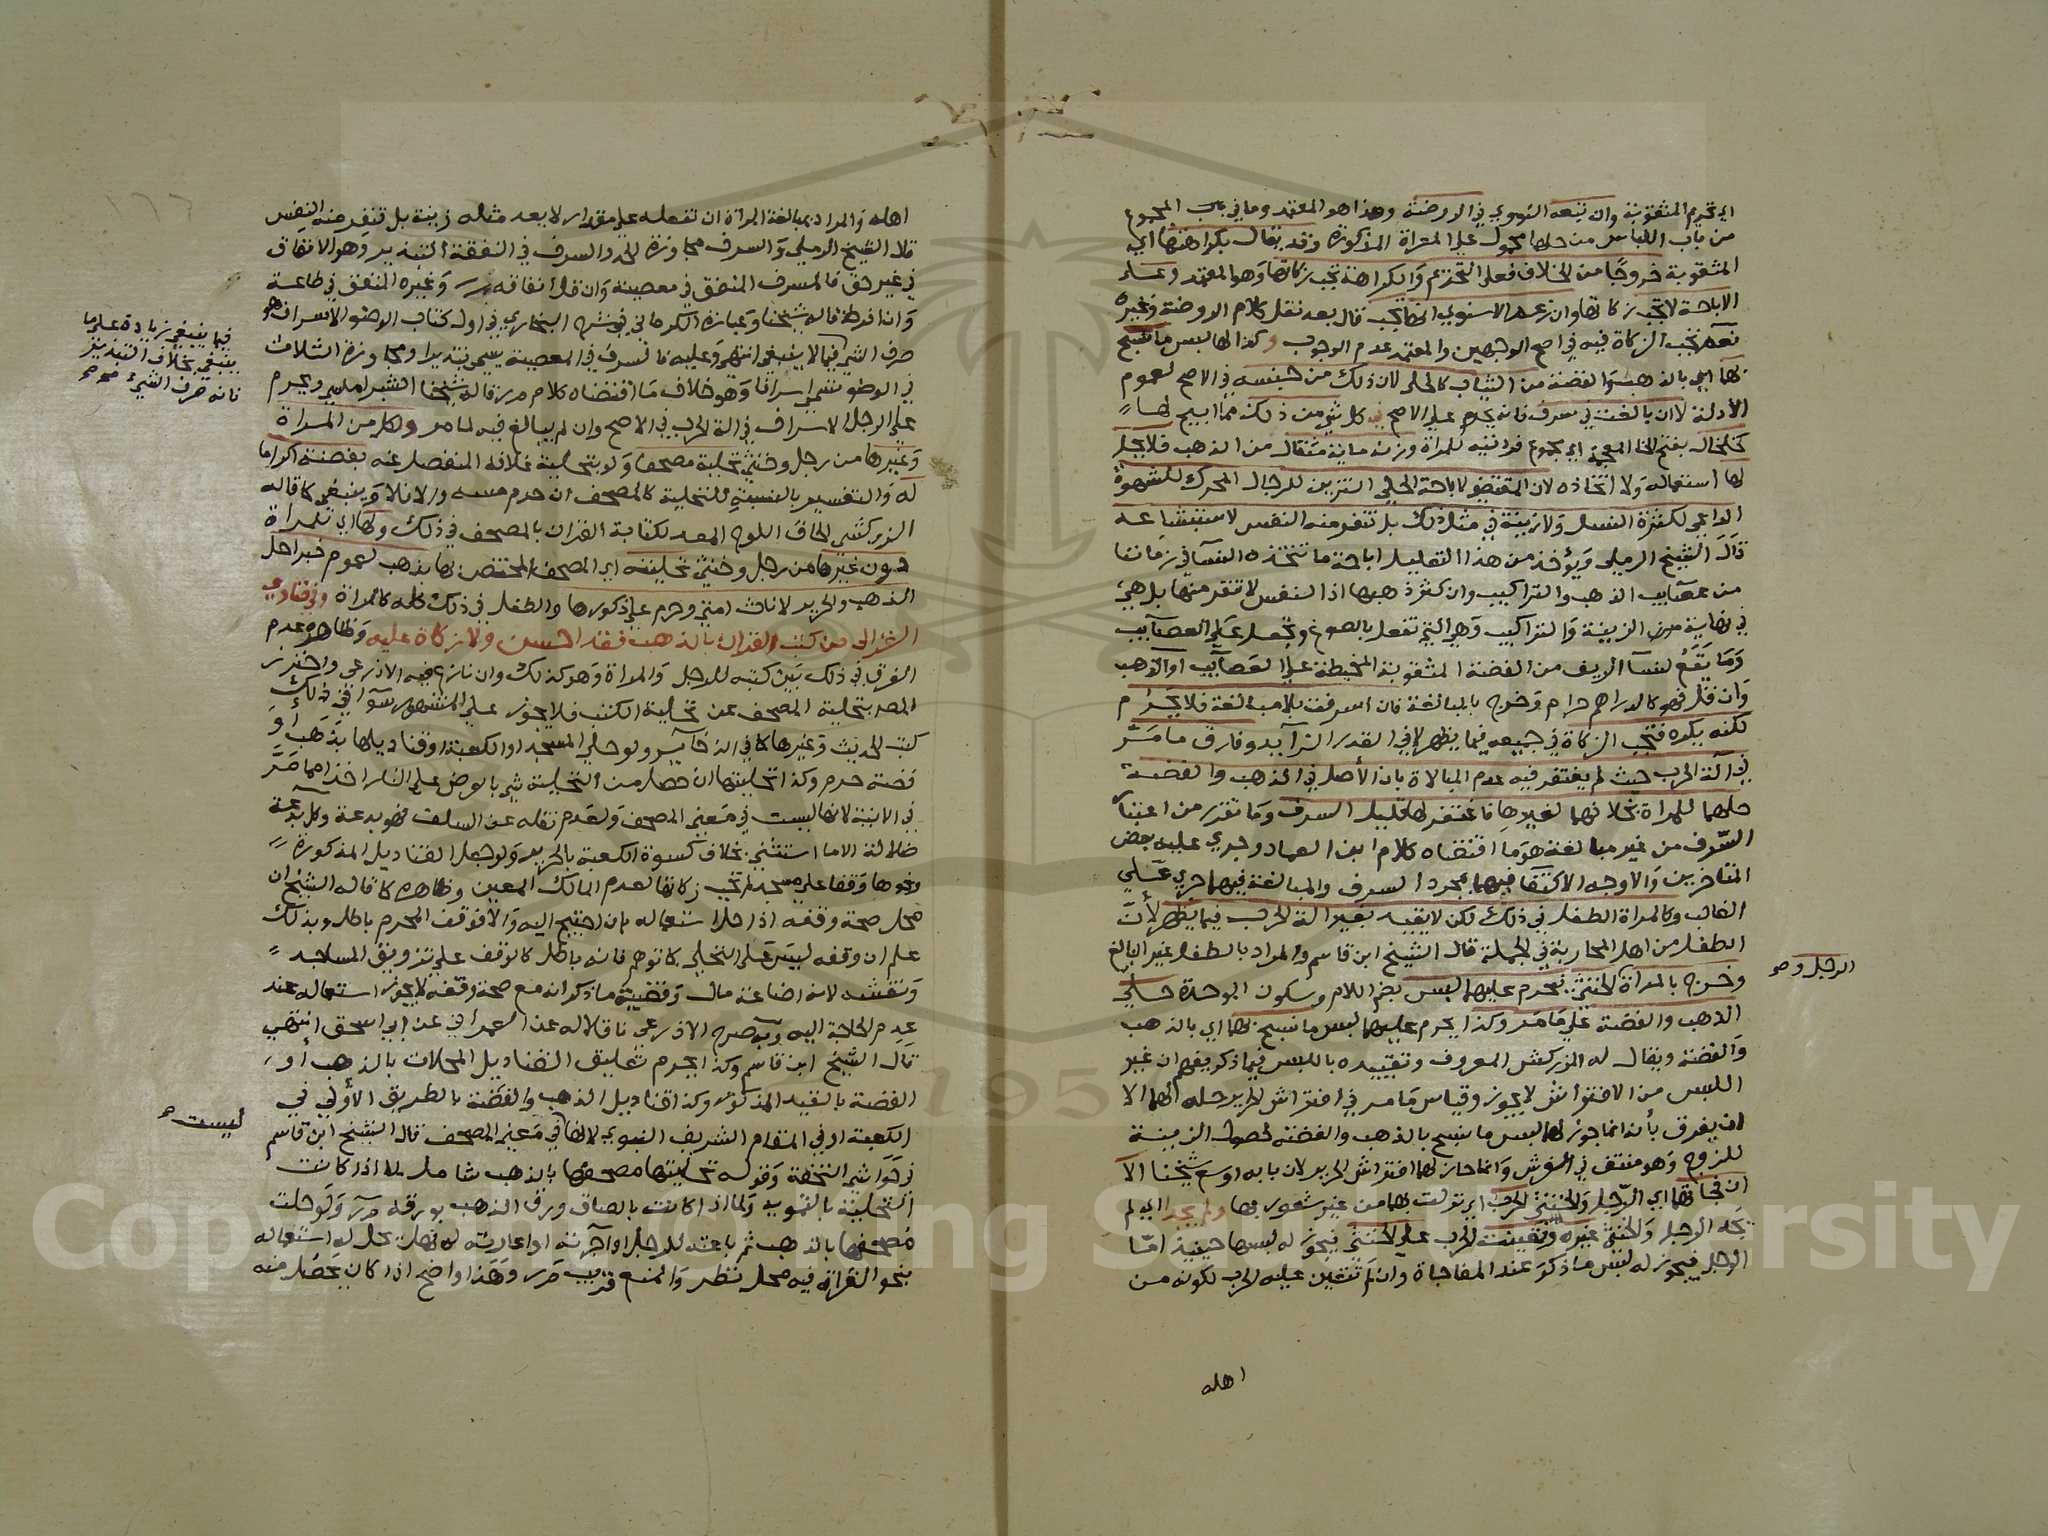 اي تحريم المثقوبة وان تبعه النووي في الروضة وهذا هو المعتمد وما في المجموع
من باب اللباس من حلها محمول على المعراة المذكورة وقد يقال بكراهتها اي
المثقوبة خروجا من الخلاف فعلى التحريم والكراهة تجب زكاتها وهو المعتمد وعلى
الاباحة لا تجب زكاتها وان زعم الاسنوي انها تجب قال بعد نقل كلام الروضة وغيره
تجب الزكاة فيه في اصح الوجهين والمعتمد عدم الوجوب وكذا لها لبس ما نسج
بهما اي بالذهب والفضة من الثياب كالحلي لان ذلك من جنسه في الاصح لعموم
الادلة لا ان بالغت في سرف فانه يحرم على الاصح في كل شي من ذلك مما ابيح لها
كخلخال بفتح الخا المعجمة اي مجموع فردتيه للمراة وزنه مائة مثقال من الذهب فلا يحل
لها استعماله ولا اتخاذه لان المقتضي لاباحة الحلي التزين للرجال المحرك للشهوة
الداعي لكثرة النسل ولا زينة في مثل ذلك بل تنفر منه النفس لاستبشاعه
قال الشيخ الرملي ويؤخذ من هذا التعليل اباحة ما تتخذه النسا في زماننا
من عصايب الذهب والتراكيب وان كثر ذهبها اذ النفس لا تنفر منها بل هي
في نهاية من الزينة والتراكيب وهي التي تفعل بالصوغ وتجعل على العصايب
وما يقع لنسا الريف من الفضة المثقوبة المخيطة على العصايب او الذهب
وان قل فهو كالدراهم حرام وخرج بالمبالغة فان اسرفت بلا مبالغة فلا يحرم
لكنه يكره فتجب الزكاة في جميعه فيما يظهر لا في القدر الزايد وفارق ما مر
في الة الحرب حيث لم يغتفر فيه عدم المبالاة بان الاصل في الذهب والفضة
حلهما للمراة بخلافهما لغيرها فاغتفر لها قليل السرف وما تقرر من اعتبار
السرف من غير مبالغة هو ما اقتضاه كلام ابن العماد وجرى عليه بعض
المتاخرين والاوجه الاكتفا فيهما بمجرد السرف والمبالغة فيهما جري على
الغالب وكالمراة الطفل في ذلك لكن لا يقيد بغير الة الحرب فيما يظهر لان
الطفل من اهل المحاربة في الجملة قال الشيخ ابن قاسم والمراد بالطفل غير البالغ
وخرج بالمراة الخنثى فيحرم عليهما لبس بضم اللام وسكون الموحدة حلي
الرجل و صح
الذهب والفضة على ما مر وكذا يحرم عليهما لبس ما نسج بهما اي بالذهب
والفضة ويقال له المزركش المعروف وتقييده باللبس فيما ذكر يفهم ان غير
اللبس من الافتراش لا يجوز وقياس ما مر في افتراش الحرير حله لهما الا
ان يفرق بأن انما جوز لها لبس ما نسج بالذهب والفضة لحصول الزينة
للزوج وهو منتف في الفرش وانما جاز لها افتراش الحرير لان بابه اوسع شيخنا الا
ان فجأتهما اي الرجل والخنثى الحرب اي نزلت بهما من غير شعور بها ولم يجدا اي لم
يجد الرجل والخنثى غيره وتعينت الحرب على الخنثى فيجوز له لبسها حينئذ اما
الرجل فيجوز له لبس ما ذكر عند المفاجاة وان لم تتعين عليه الحرب لكونه من
اهله
اهله والمراد بمبالغة المراة ان تفعله على مقدار لا يعد مثله زينة بل تنفر منه النفس
قال الشيخ الرملي والسرف مجاوزة الحد والسرف في النفقة التبذير وهو الانفاق
في غير حق فالمسرف المنفق في معصية وان قل انفاقه وغيره المنفق في طاعة
وان افرط قاله شيخنا وعبارة الكرماني في شرح البخاري في اول كتاب الوضو الاسراف هو
صرف الشي فيما لا ينبغي انتهى وعليه فالسرف في المعصية يسمى تبذيرا ومجاوزة الثلاث
فيما ينبغي زيادة على ما
ينبغي بخلاف التبذير
فانه صرف الشيء صح
في الوضو تسمى اسرافا وهو خلاف ما اقتضاه كلام م ر قاله شيخنا الشبراملسي ويحرم
على الرجل الاسراف في الة الحرب في الاصح وان لم يبالغ فيه لما مر ولكل من المراة
وغيرها من رجل وخنثى تحلية مصحف ولو بتحلية غلافه المنفصل عنه بفضة اكراما
له والتقسيم بالنسبة للتحلية كالمصحف ان حرم مسه والا فلا وينبغي كما قاله
الزركشي الحاق اللوح المعد لكتابة القران بالمصحف في ذلك ولها اي للمراة
دون غيرها من رجل وخنثى تحليته اي المصحف المختص بها بذهب لعموم خبر احل
الذهب والحرير لاناث امتي وحرم على ذكورها والطفل في ذلك كله كالمراة وفي فتاوى
الغزالي من كتب القران بالذهب فقد احسن ولا زكاة عليه وظاهره عدم
الفرق في ذلك بين كتبه للرجل والمراة وهو كذلك وان نازع فيه الاذرعي واحترز
المص بتحلية المصحف عن تحلية الكتب فلا يجوز على المشهور سوا في ذلك
كتب الحديث وغيرها كما في الذخاير ولو حلى المسجد او الكعبة او قناديلها بذهب او
فضة حرم وكذا تحليتها ان حصل من التحلية شي بالعرض على النار اخذا مما مر
في الانية لانها ليست في معنى المصحف ولعدم نقله عن السلف فهو بدعة وكل بدعة
ضلالة الا ما استثني بخلاف كسوة الكعبة بالحرير ولو جعل القناديل المذكورة
ونحوها وقفا على مسجد لم تجب زكاتها لعدم المالك المعين وظاهره كما قاله الشيخ ان
محل صحة وقفه اذا حل استعماله بان احتيج اليه والا فوقف المحرم باطل وبذلك
علم ان وقفه ليس على التحلي كما توهم فانه باطل كالوقف على تزويق المساجد
ونقشه لانه اضاعة مال وقضية ما ذكر انه مع صحة وقفه لا يجوز استعماله عند
عدم الحاجة اليه وبه صرح الاذرعي ناقلا له عن العمراني عن ابي اسحق انتهى
قال الشيخ ابن قاسم وكذا يحرم تعليق القناديل المحلات بالذهب او
الفضة بالقيد المذكور وكذا قناديل الذهب والفضة بالطريق الأولى في
الكعبة او في المقام الشريف النبوي لانها في معنى المصحف قال الشيخ ابن قاسم
ليست صح
في حواشي التحفة وقوله تحليتها مصحفها بالذهب شامل لما اذا كانت
التحلية بالتمويه ولما اذا كانت بالصاق ورق الذهب بورقه م ر ولو حلت
مصحفها بالذهب ثم باعته للرجل او اجرته او اعارته له فهل يحل له استعماله
بنحو القراة فيه محل نظر والمنع قريب م ر وهذا واضح اذا كان يحصل منه
Copyright © King Saud University
195